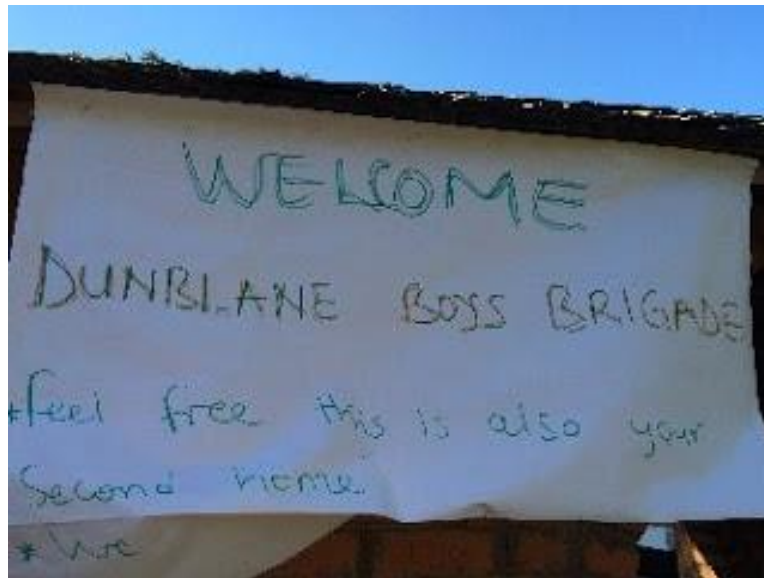 WELCOME
DUNBLANE BOYS BRIGADE
*feel free this is also your
Second home
*